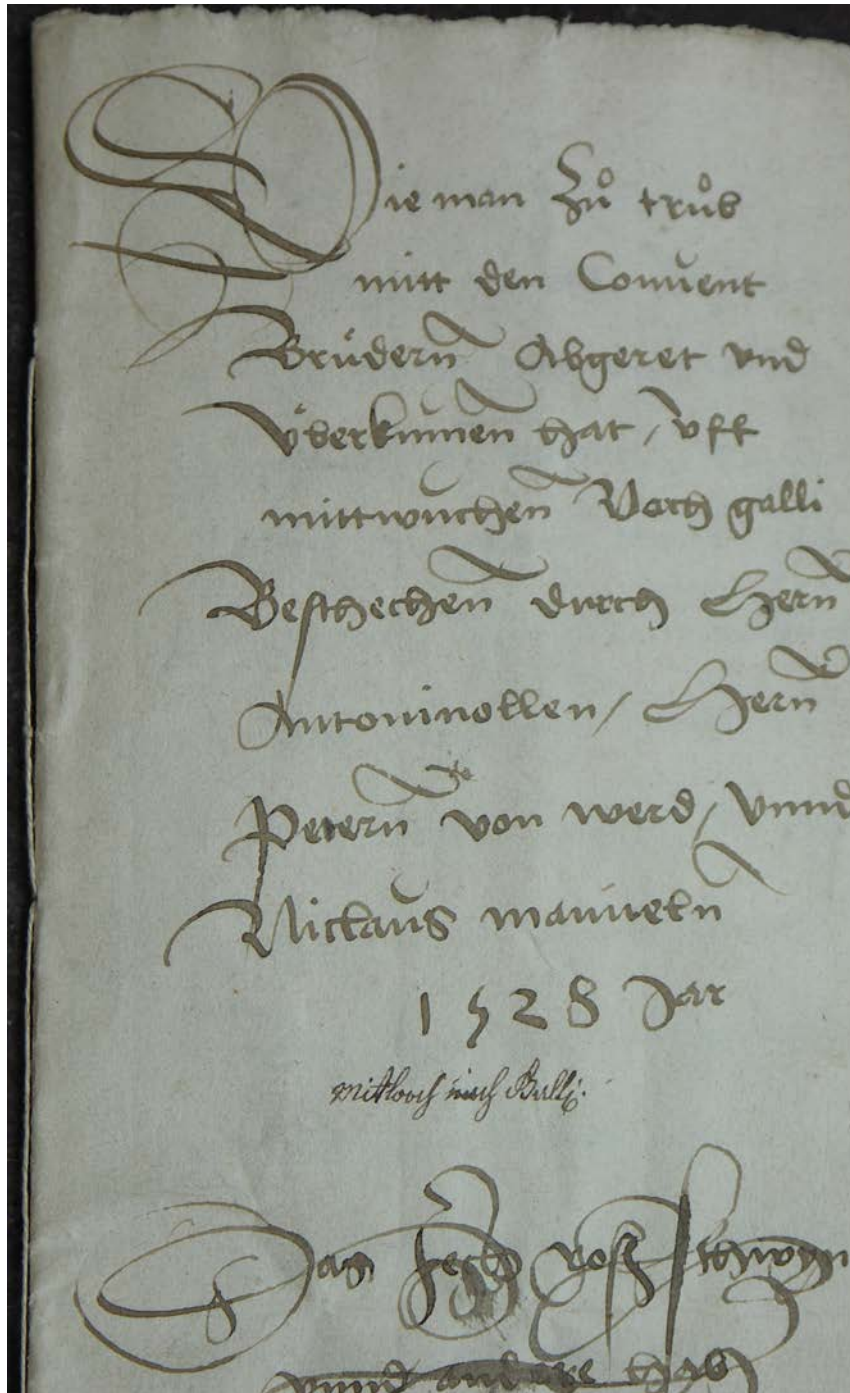 Wie man zů trůb
mitt den Convent
Brüdern Abgeret vnd
Vberkumen hat / vff
mittwuchen Nach galli
Beschechen durch Hern
Antoninollen / Hern
Petern von werd / Vnnd
Niclaus manueln
1528 Jar
Mitwoch nach Galli.
Das fech ross schwyn
vnnd andere hab